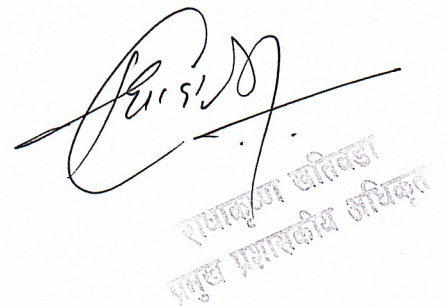 राधाकृष्ण खतिवडा
प्रमुख प्रशासकीय अधिकृत